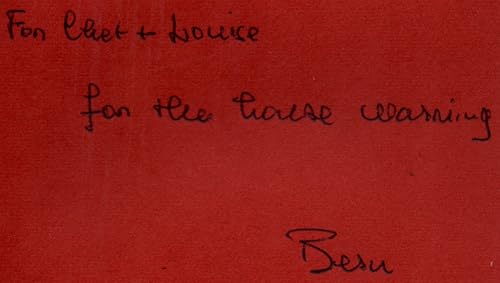 For Chet + Louise
for the house warming